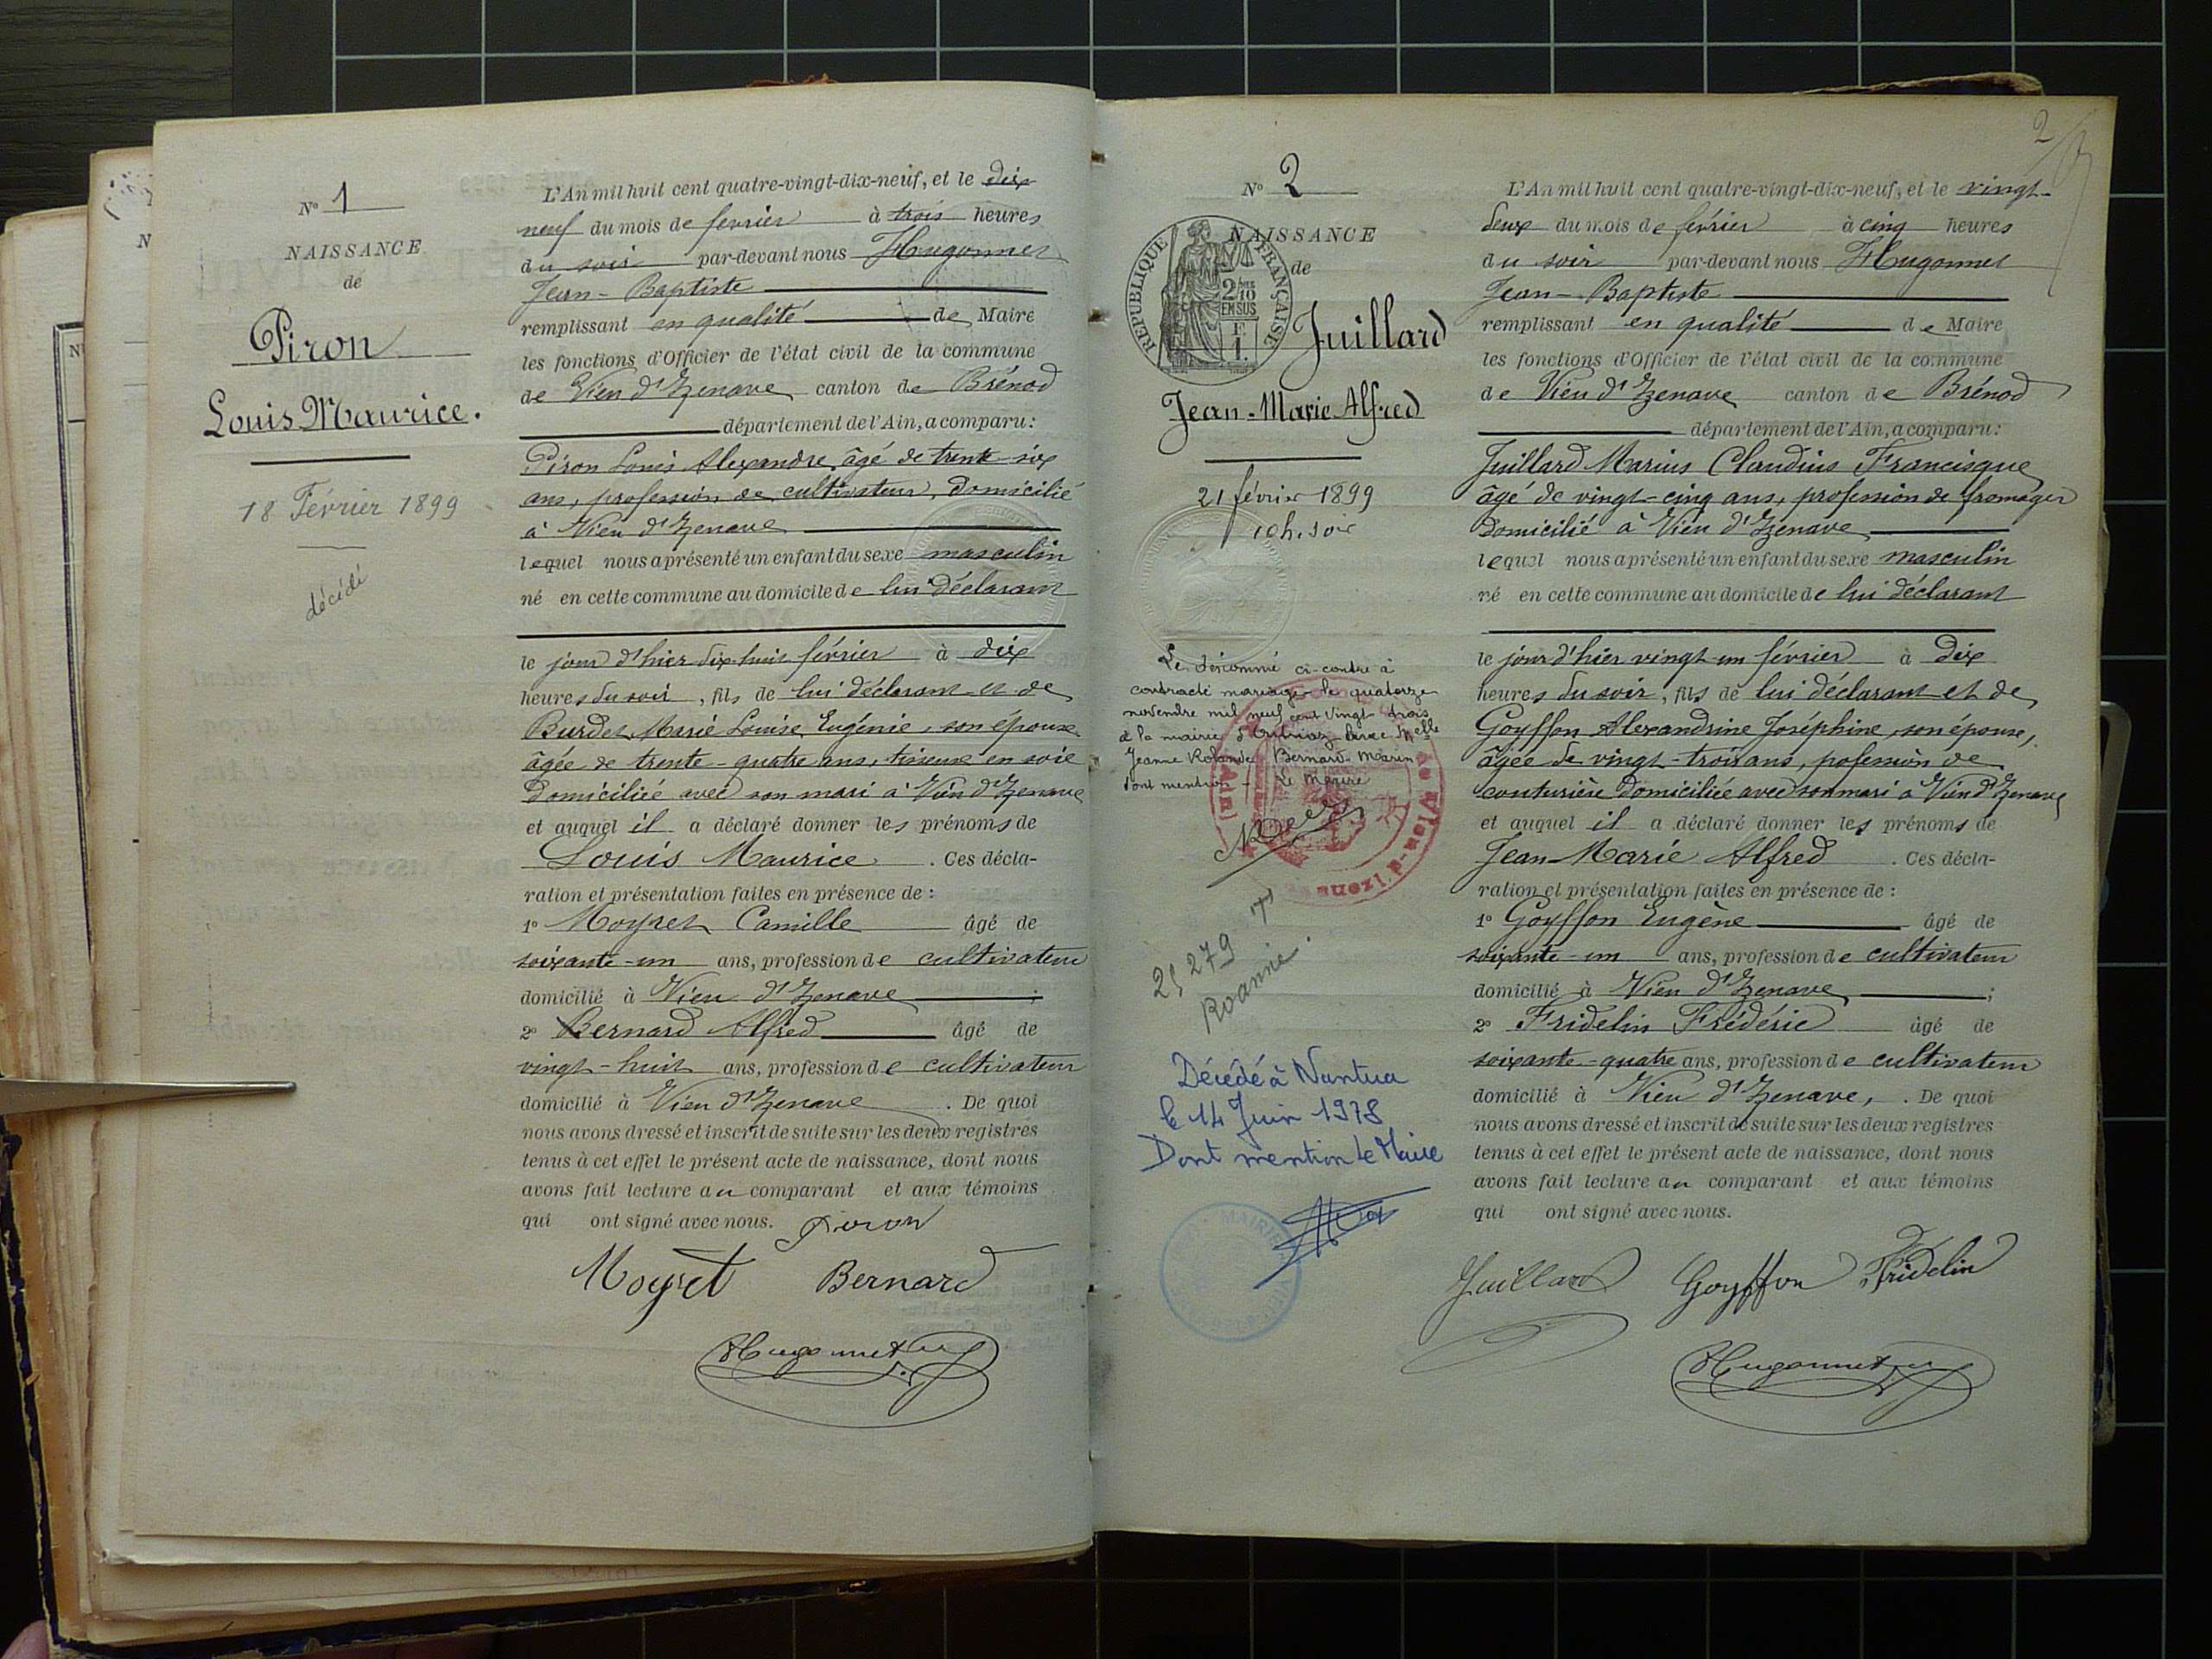 N° 1
NAISSANCE
de
Piron
Louis Maurice.
18 Février 1899
décédé
L'An mil huit cent quatre-vingt-dix-neuf, et le dix
neuf du mois de fevrier à trois heures
du soir par-devant nous Hugonnet
Jean-Baptiste
remplissant en qualité de Maire
les fonctions d'Officier de l'état civil de la commune
de Vieu d'Izenave canton de Brénod
département de l'Ain, a comparu:
Piron Louis Alexandre, âgé de trente six
ans, profession de cultivateur, domicilié
à Vieu d'Izenave
lequel nous a présenté un enfant du sexe masculin
né en cette commune au domicile de lui déclarant
le jour d'hier dix huit février à dix
heures du soir, fils de lui déclarant et de
Burdet Marie Louise Eugénie, son épouse
âgée de trente-quatre ans, tisseuse en soie
domiciliée avec son mari à Vieu d'Izenave
et auquel il a déclaré donner les prénoms de
Louis Maurice. Ces décla-
ration et présentation faites en présence de :
1° Moyret Camille âgé de
soixante-un ans, profession de cultivateur
domicilié à Vieu d'Izenave ;
2° Bernard Alfred âgé de
vingt-huit ans, profession de cultivateur
domicilié à Vieu d'Izenave. De quoi
nous avons dressé et inscrit de suite sur les deux registres
tenus à cet effet le présent acte de naissance, dont nous
avons fait lecture au comparant et aux témoins
qui ont signé avec nous. Piron
Moyret Bernard
Hugonnet
2
N° 2
NAISSANCE
de
REPUBLIQUE FRANÇAISE
2/10
EN SUS
Juillard
Jean-Marie Alfred
21 février 1899
10 h. soir
Le dénommé ci-contre à
contracté mariage le quatorze
novembre mil neuf cent vingt trois
à la mairie avec Melle
Jeanne Rolande Bernard-Marin
dont mention Le Maire
25 279
Roanne.
Décédé à Nantua
le 14 Juin 1978
Dont mention Le Maire
MAIRIE
L'An mil huit cent quatre-vingt-dix-neuf, et le vingt-
deux du mois de février à cinq heures
du soir par-devant nous Hugonnet
Jean-Baptiste
remplissant en qualité de Maire
les fonctions d'Officier de l'état civil de la commune
de Vieu d'Izenave canton de Brénod
département de l'Ain, a comparu:
Juillard Marius Claudius Francisque
âgé de vingt-cinq ans, profession de fromager
domicilié à Vieu d'Izenave
lequel nous a présenté un enfant du sexe masculin
né en cette commune au domicile de lui déclarant
le jour d'hier vingt-un février à dix
heures du soir, fils de lui déclarant et de
Goyffon Alexandrine Joséphine, son épouse,
âgée de vingt-trois ans, pofession de
couturière domiciliée avec son mari à Vieu d'Izenave
et auquel il a déclaré donner les prénoms de
Jean-Marie Alfred. Ces décla-
ration et présentation faites en présence de :
1° Goyffon Eugène âgé de
soixante-un ans, profession de cultivateur
domicilié à Vieu d'Izenave ;
2° Fridelin Frédéric âgé de
soixante-quatre ans, profession de cultivateur
domicilié à Vieu d'Izenave, . De quoi
nous avons dressé et inscrit de suite sur les deux registres
tenus à cet effet le présent acte de naissance, dont nous
avons fait lecture au comparant et aux témoins
qui ont signé avec nous.
Juillard Goyffon Fridelin
Hugonnet